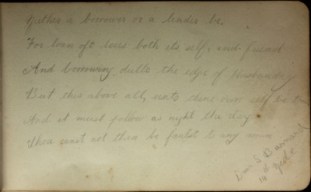 Neither a borrower or a lender be
For loan oft loses both its self, and friend
And borrowing dulls the edge of Husbandry
But this above all, unto thine own self be
And it must follow as night the day
Thou canst not then be false to any man